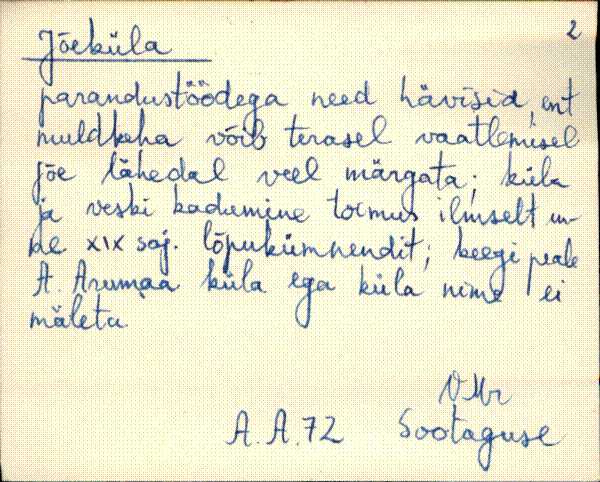 Jõeküla
2
parandustöödega need hävisid, ent
muldkeha võib terasel vaatlemisel
jõe lähedal veel märgata; küla
ja veski kadumine toimus ilmselt um-
be XIX saj. lõpukümnendit; keegi peale
A. Arumaa küla ega küla nime ei
mäleta.
VMr
A.A.72 Sootaguse